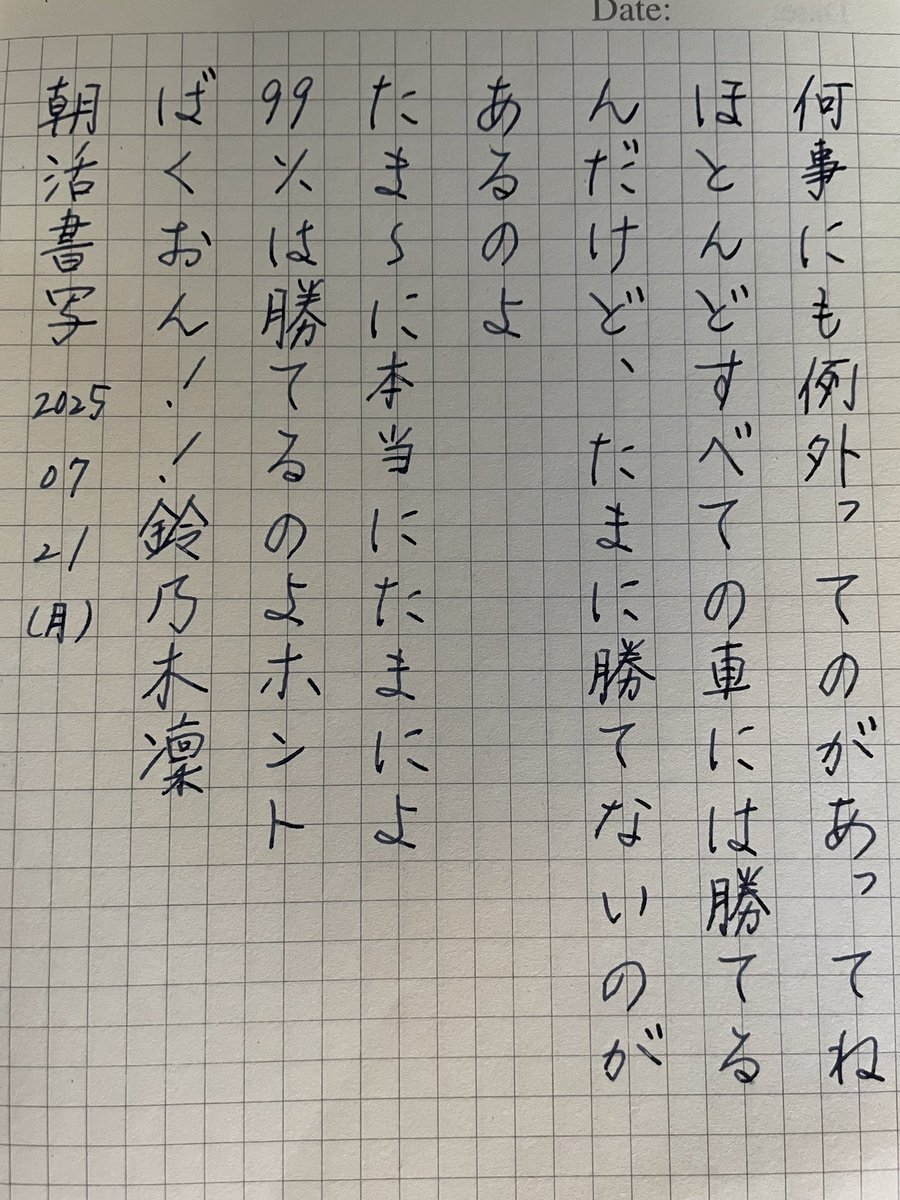 Date:
何事にも例外ってのがあってね
ほとんどすべての車には勝てる
んだけど、たまに勝てないのが
あるのよ
たま〜に本当にたまによ
99%は勝てるのよホント
ばくおん!!鈴乃木凜
朝活書写 2025 07 21 (月)